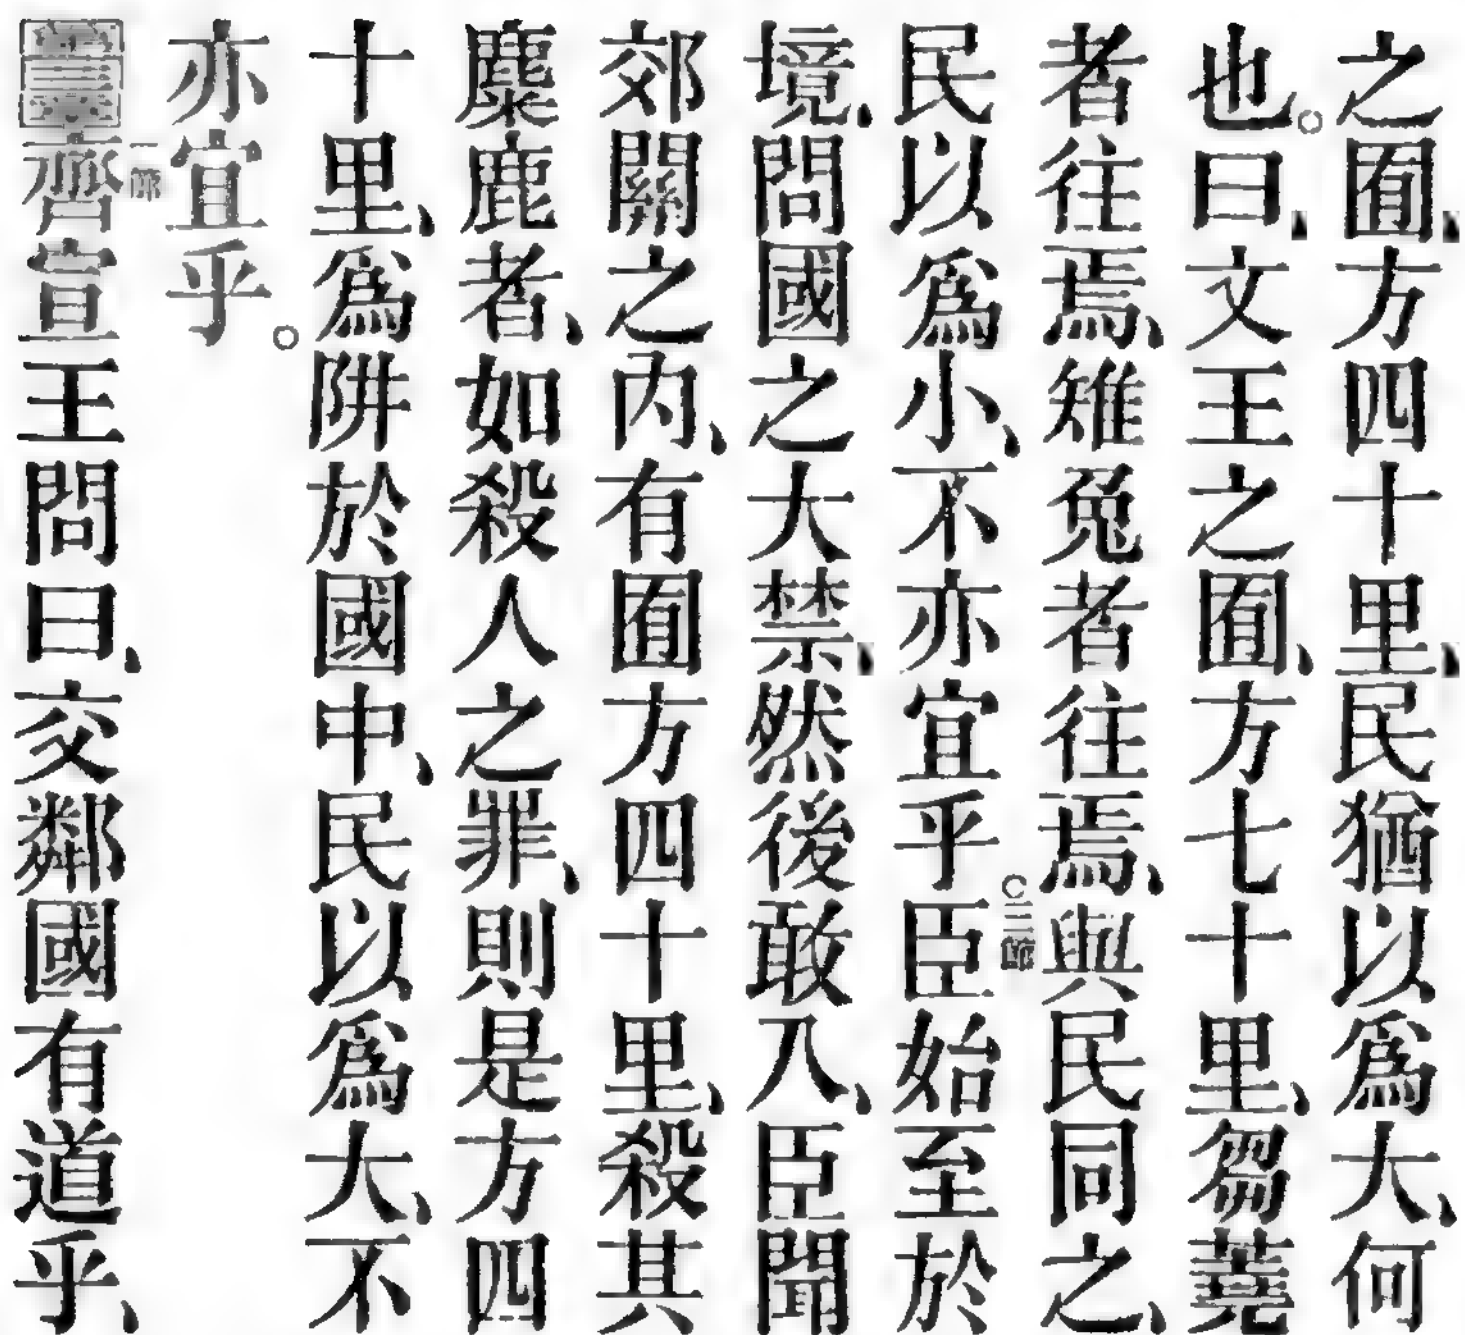 之囿、方四十里、民猶以爲大、何
也。曰、文王之囿、方七十里、芻蕘
者往焉、雉兔者往焉、與民同之、
民以爲小、不亦宜乎。二節臣始至於
境、問國之大禁、然後敢入、臣聞
郊關之內、有囿方四十里、殺其
麋鹿者、如殺人之罪、則是方四
十里、爲阱於國中、民以爲大、不
亦宜乎。
三章一節齊宣王問曰、交鄰國有道乎、